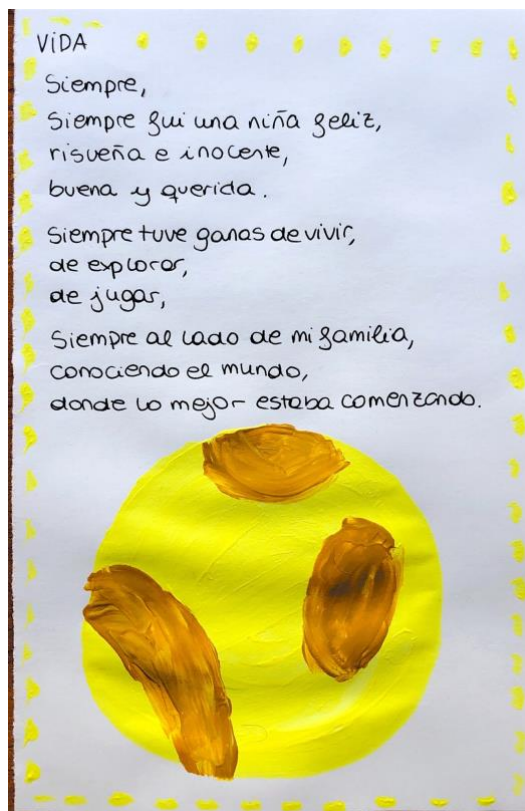 VIDA
Siempre,
Siempre fui una niña feliz,
risueña e inocente,
buena y querida.
Siempre tuve ganas de vivir,
de explorar,
de jugar,
Siempre al lado de mi familia,
conociendo el mundo,
donde lo mejor estaba comenzando.